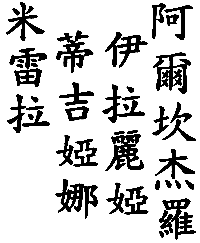 阿爾坎杰羅
伊拉麗婭
蒂吉婭娜
米雷拉